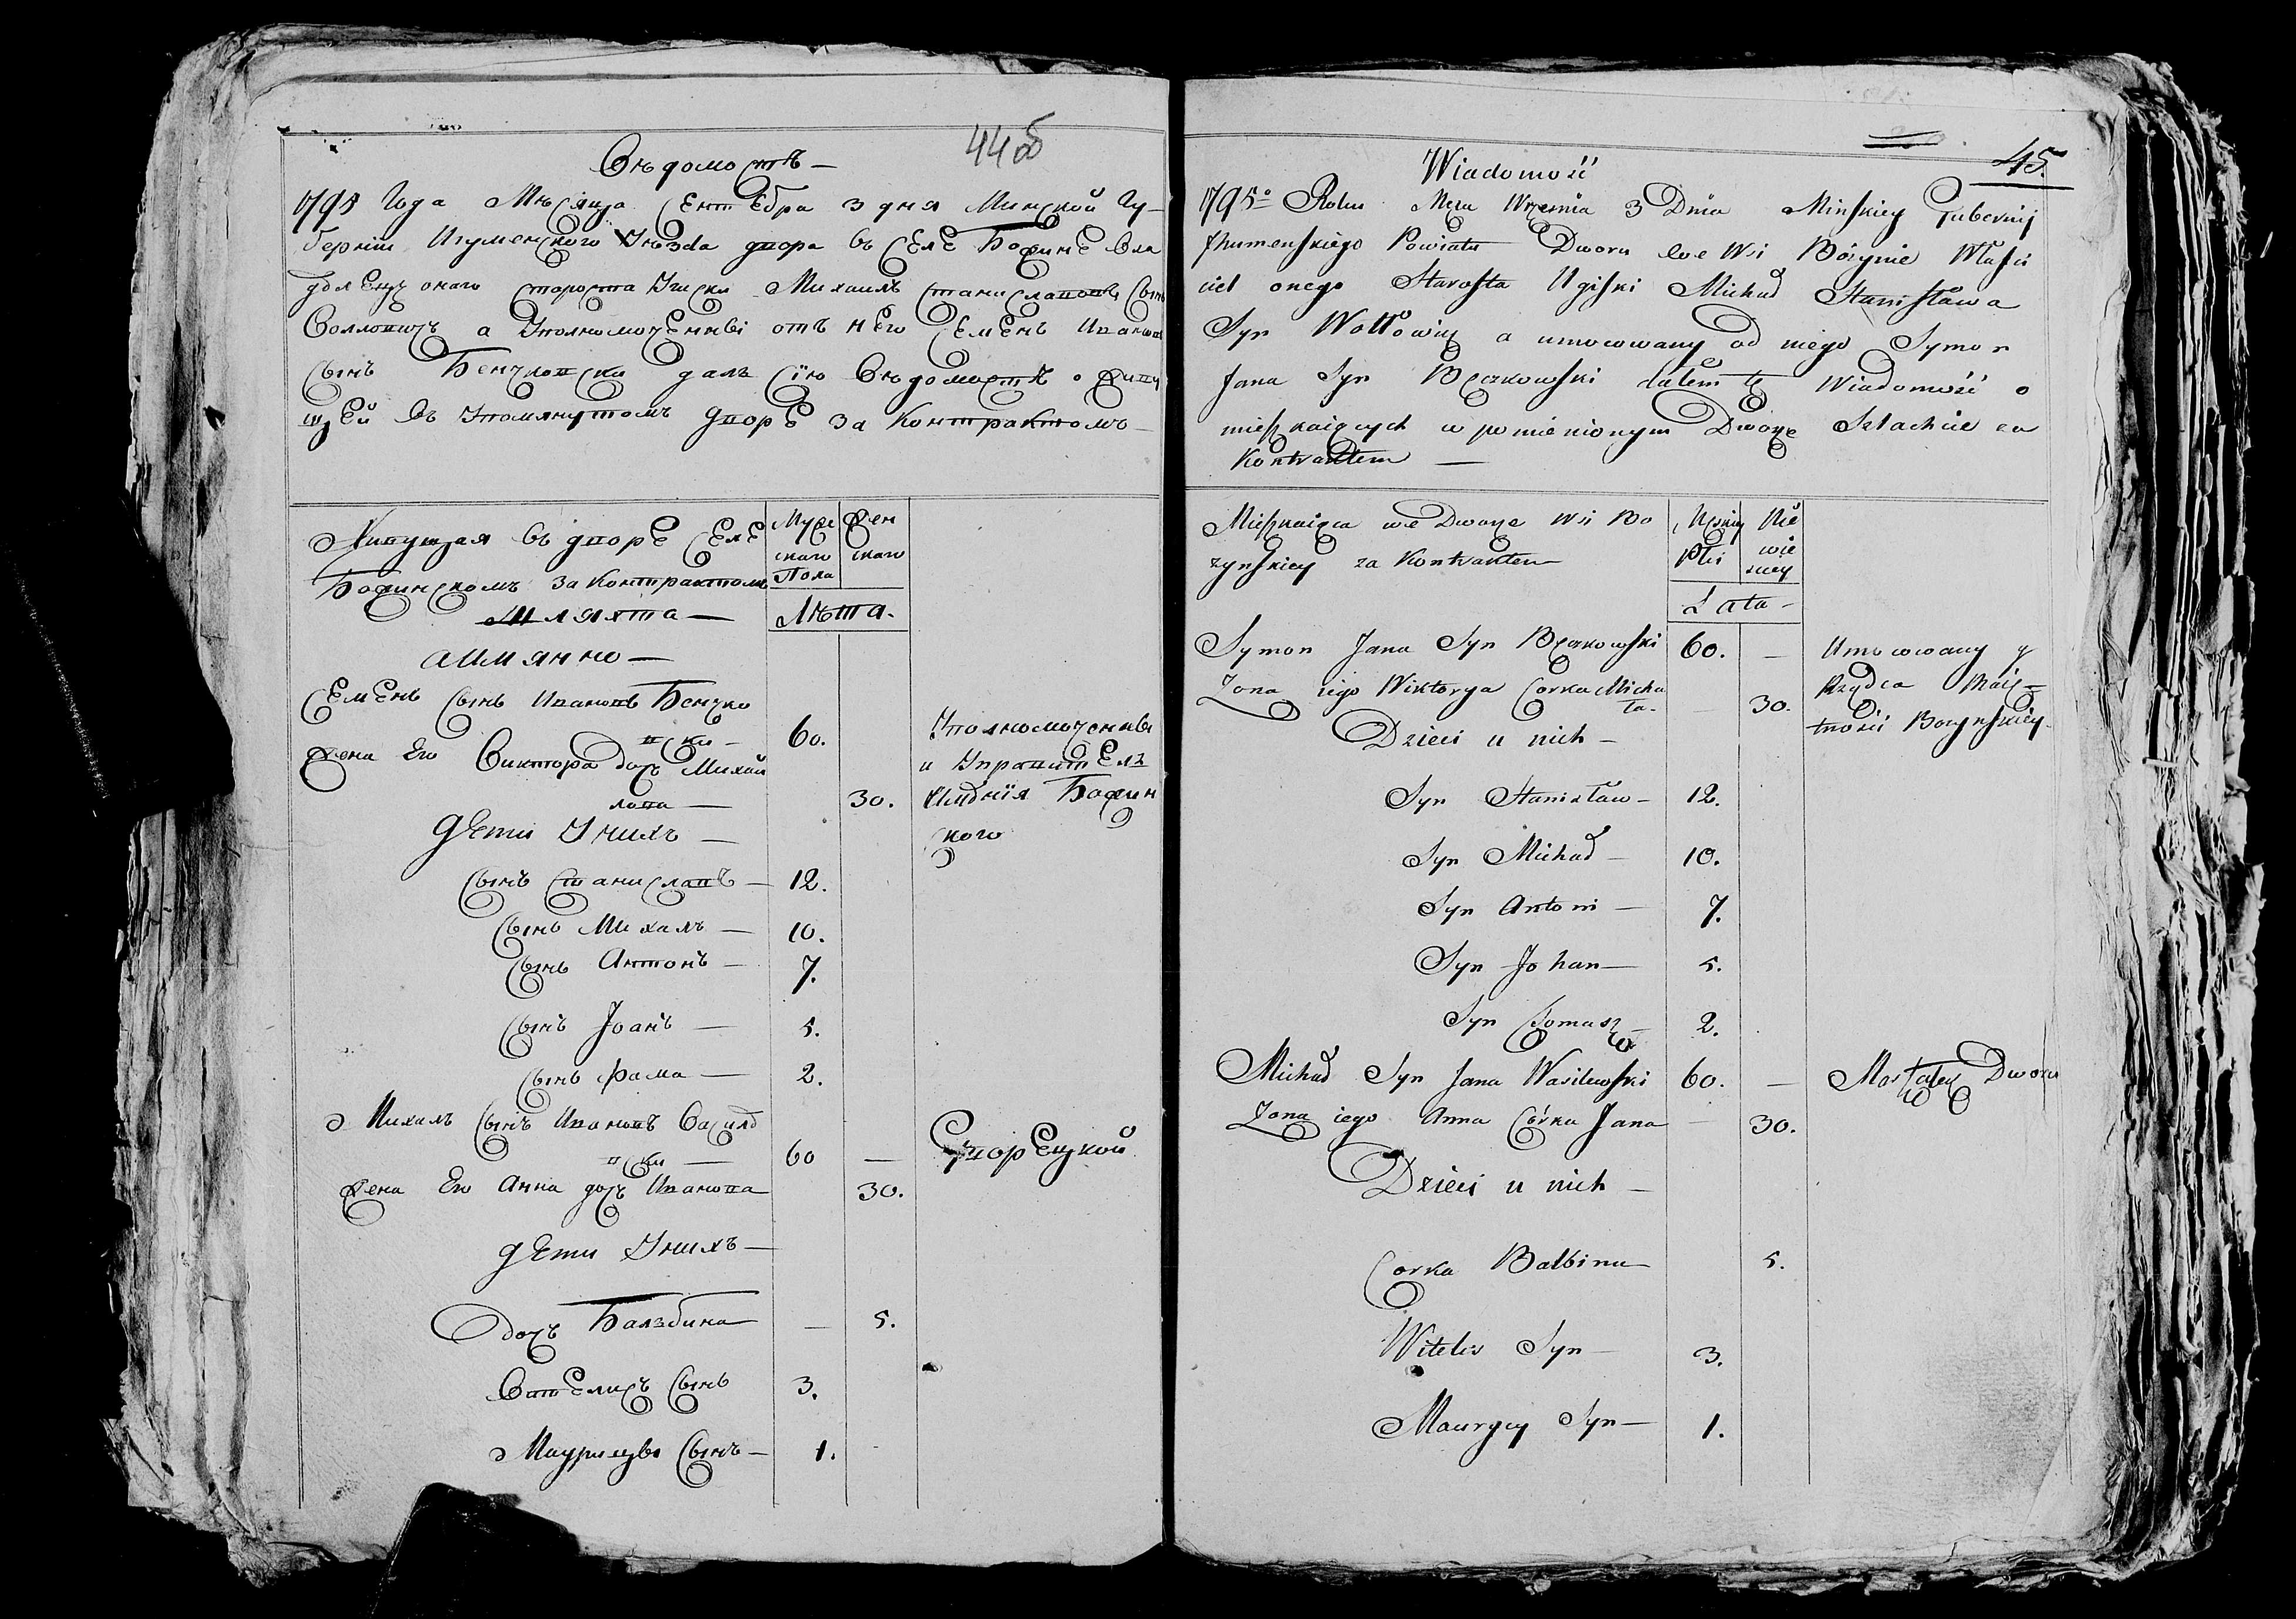 44об
Вѣдомость —
1795 Года Мѣсяца Сентебра 3 дня Минской Гу-
бернiи Игуменского Уѣзда двора въ Селе Божине Вла
дѣлецъ онаго староста Угиски Михаилъ Станиславовъ Сынъ
Волловичъ а Уполномоченны отъ него Семенъ Ивановъ
Сынъ Бенчковски далъ сiю Вѣдомость о живу
щей въ Упомянутомъ дворе за Контрактомъ —
Живущая въ дворе Селе
Божинскомъ за Контрактомъ
шляхта —
Муже
скаго
Пола
Жен
скаго
Лѣта.
аимянно —
Семенъ Сынъ Ивановъ Бенчко
вски — 60.
Жена Его Виктора дочъ Михай
лова — 30.
Уполномоченны
и Управитель
Имѣнiя Божин
ского
дети Унихъ —
Сынъ Станиславъ — 12.
Сынъ Михалъ — 10.
Сынъ Антонъ — 7.
Сынъ Jоанъ — 5.
Сынъ Фама — 2.
Михалъ Сынъ Ивановъ Василѣ
вски — 60 —
Жена Его Анна дочъ Иванова 30.
дети Унихъ —
дочъ Бальбина — 5.
Вителисъ Сынъ 3.
Маурыцы Сынъ — 1.
45
Wiadomość
1795º Roku Mca Września 3 Dnia Minskiey Gubernij
Jhumenskiego Powiatu Dworu we Wsi Bożynie Właści
ciel onego Starosta Ugiski Michał Stanisława
Syn Wołłowicz a umocowany od niego Symon
Jana Syn Bęczkowski dałem tę Wiadomość o
mieszkaiących w pomienionym Dworze Szlachcie za
Kontraktem —
Mieszkaiąca we Dworze Wsi Bo
żynskiey za Kontraktem
Męskiey
Płci
Nie
wie
sciey
Lata —
Symon Jana Syn Bęczkowski 60. —
Zona iego Wiktorya Corka Micha
ła. — 30.
Umocowany y
Rządca Maię-
tności Bożynskiey.
Dzieci u nich —
Syn Stanisław — 12.
Syn Michał — 10.
Syn Antoni — 7.
Syn Johan — 5.
Syn Tomasz — 2.
Michał Syn Jana Wasilewski 60. — Masztalerz Dworu
Zona iego Anna Córka Jana — 30.
Dzieci u nich —
Corka Balbina — 5.
Witelis Syn — 3.
Maurycy Syn — 1.